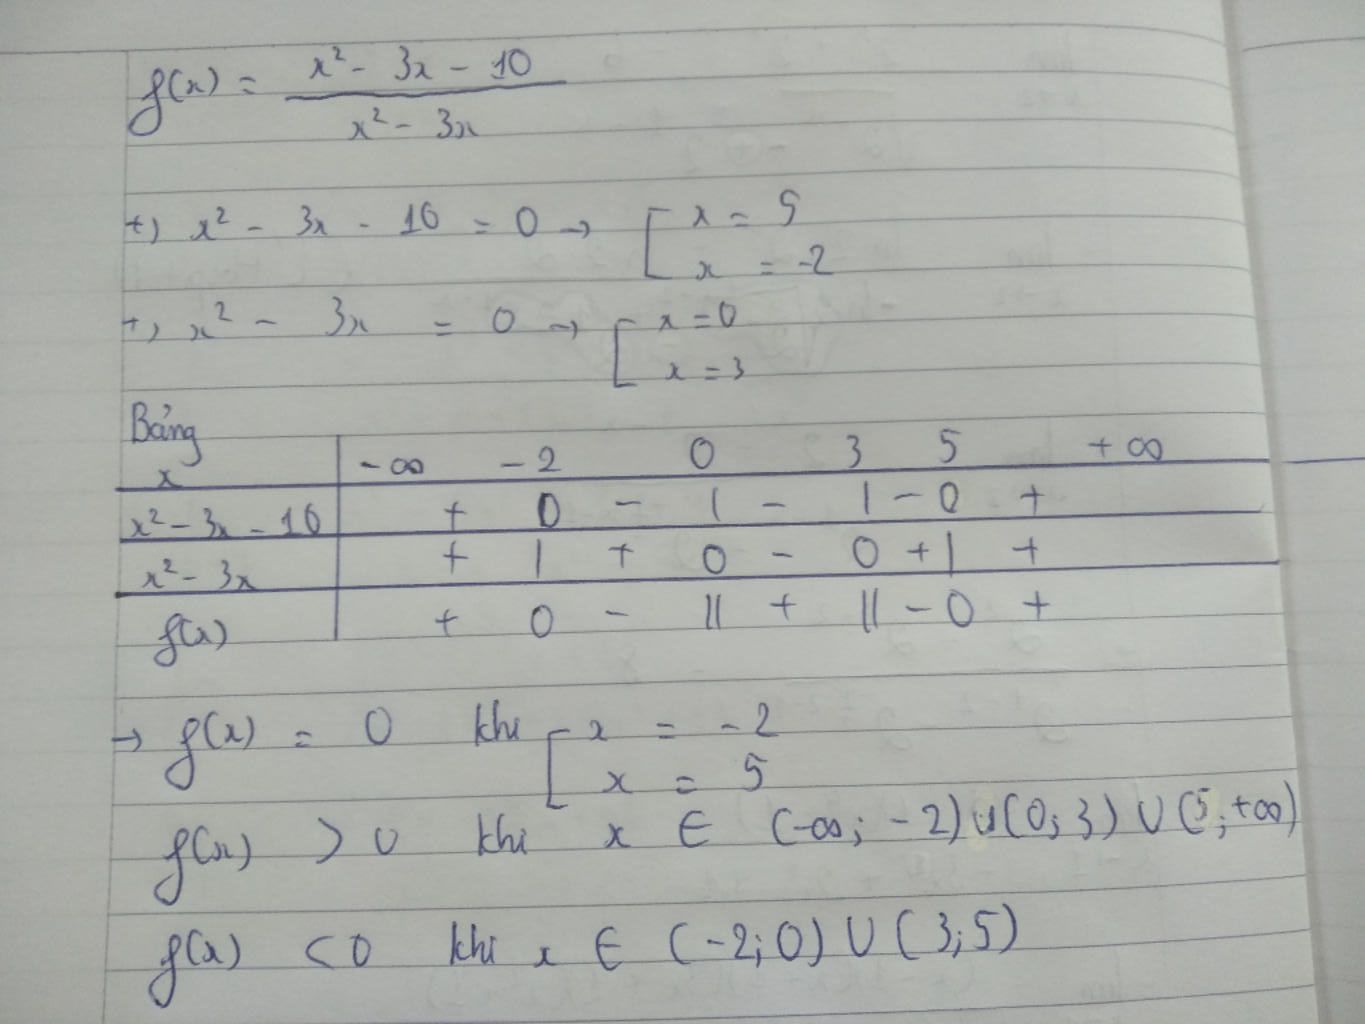 f(x) = x² - 3x - 10
x² - 3x
+) x² - 3x - 10 = 0 → [ x = 5
x = -2
+) x² - 3x = 0 → [ x = 0
x = 3
Bảng
x | -∞ -2 0 3 5 +∞
x² - 3x - 10 | + 0 - | - | - 0 +
x² - 3x | + | + 0 - 0 + | +
f(x) | + 0 - || + || - 0 +
→ f(x) = 0 khi [ x = -2
x = 5
f(x) > 0 khi x ∈ (-∞; -2) ∪ (0; 3) ∪ (5; +∞)
f(x) < 0 khi x ∈ (-2; 0) ∪ (3; 5)